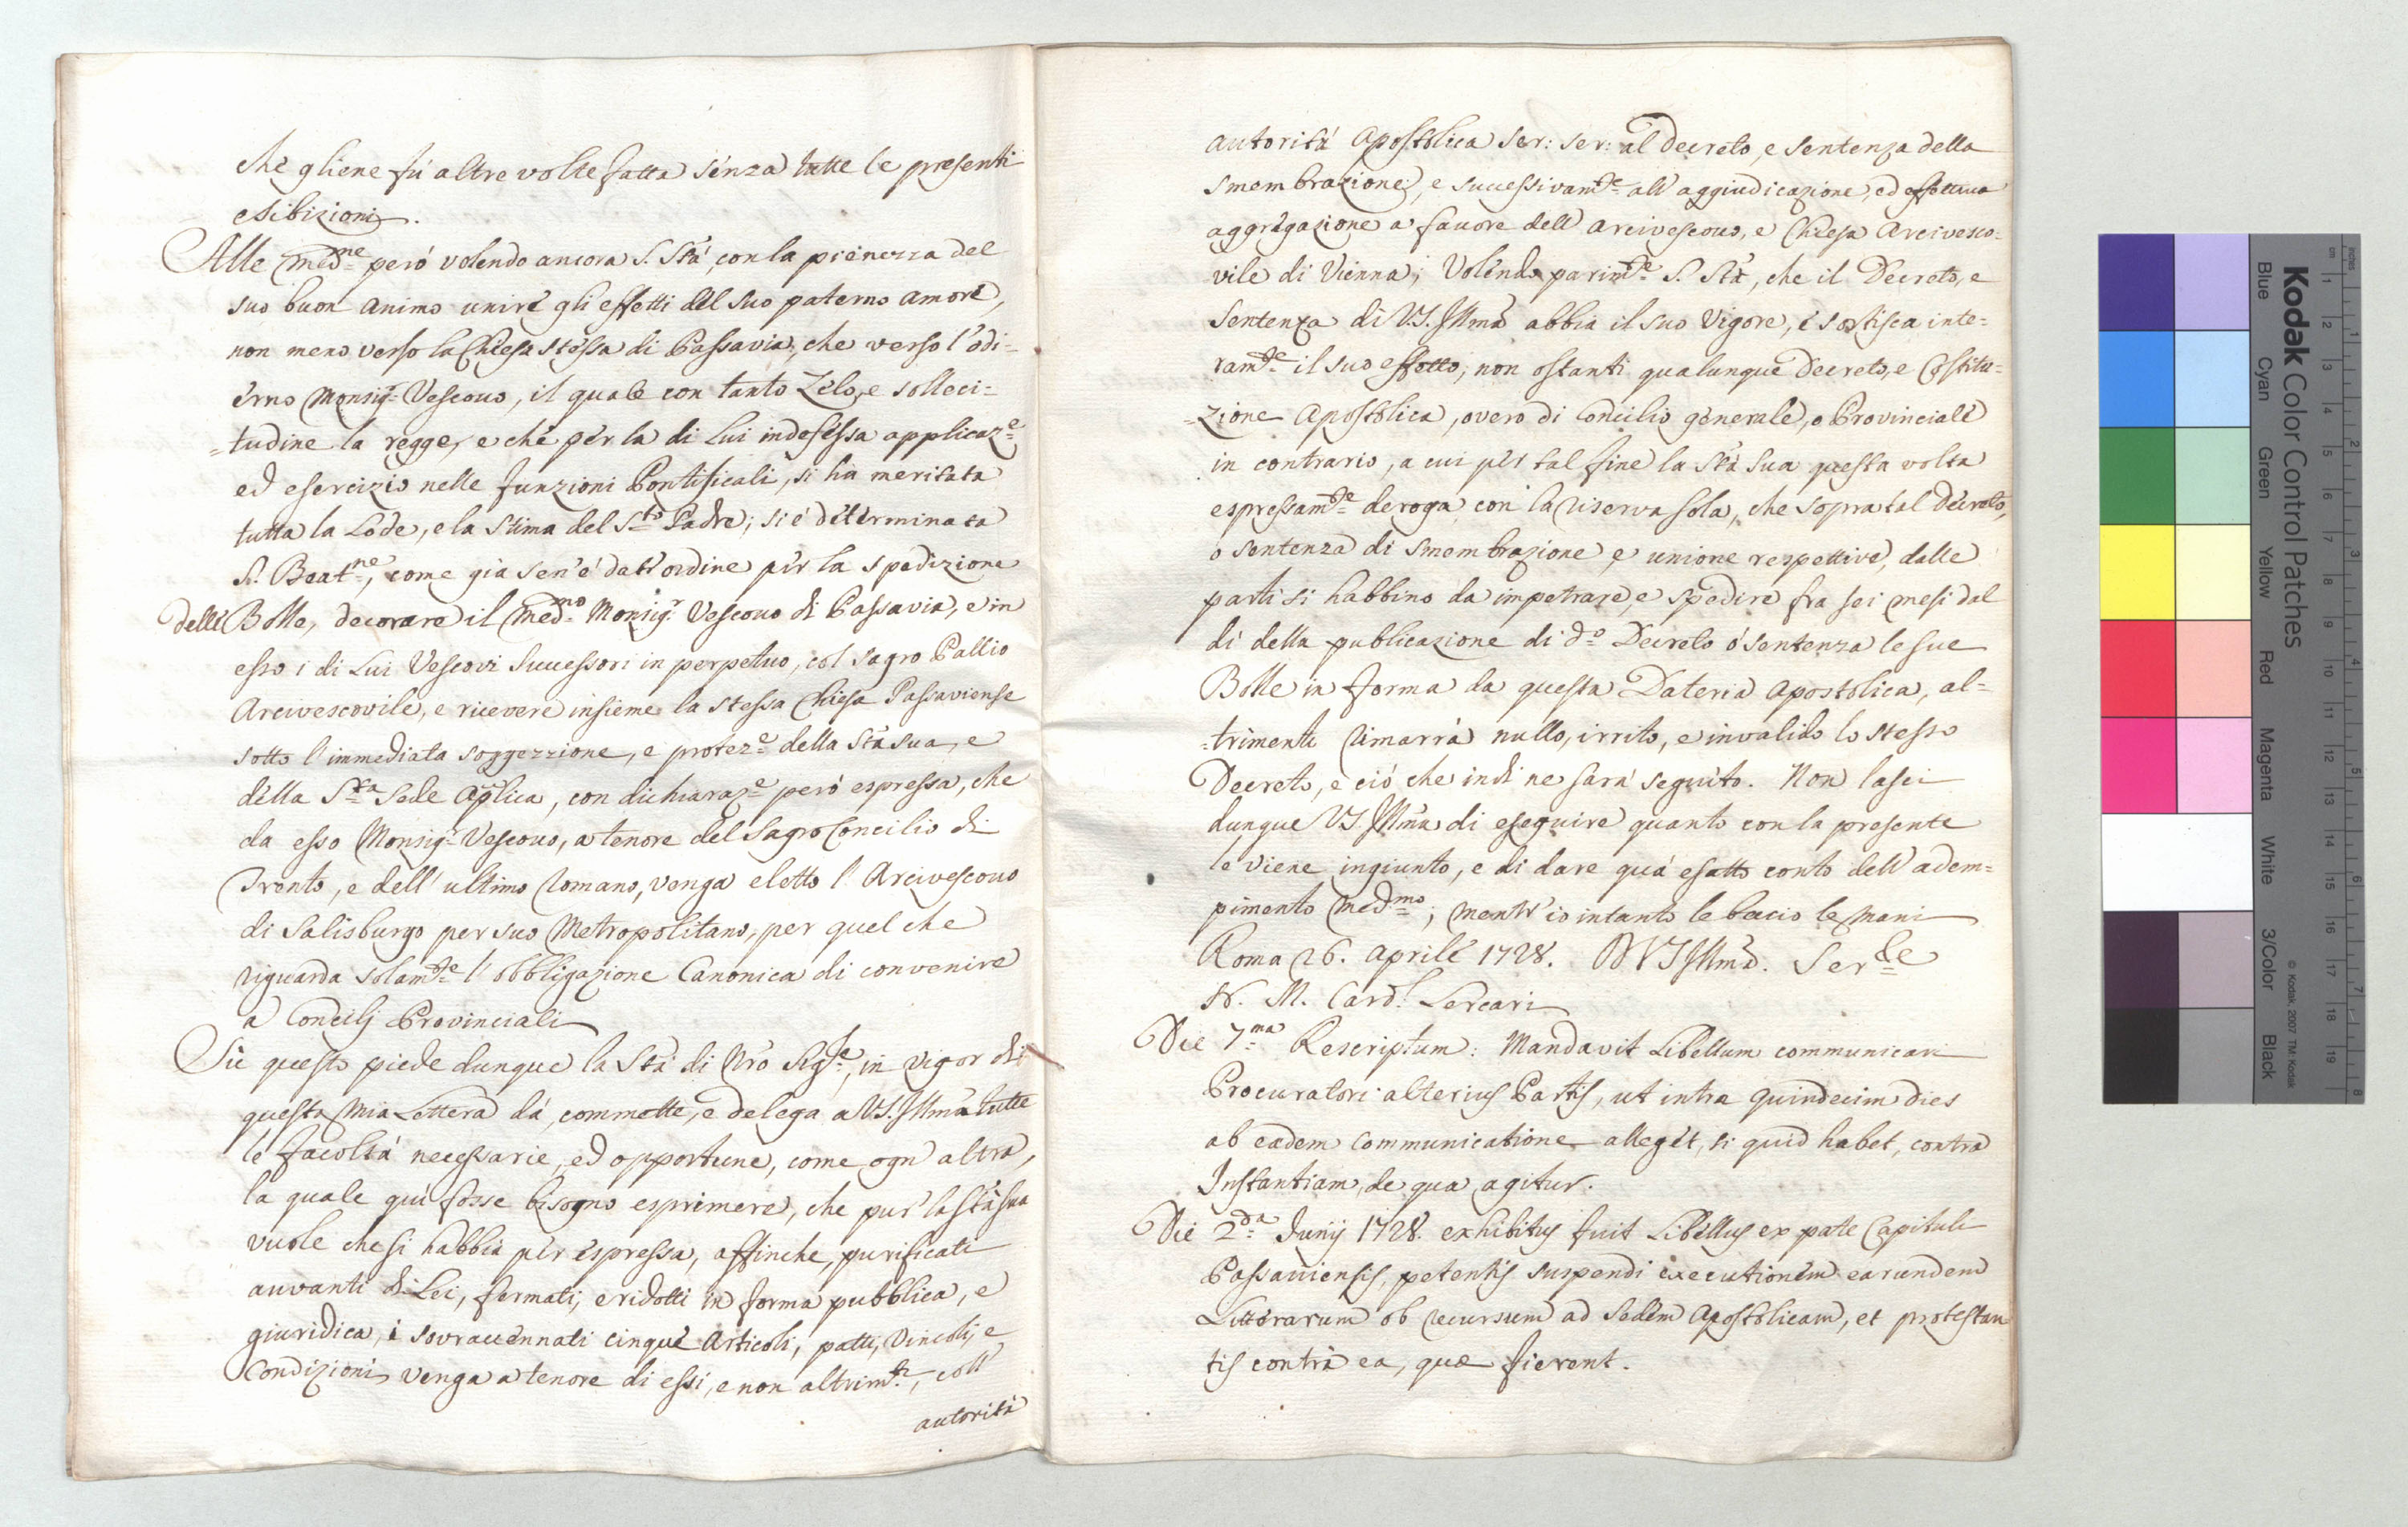 che gliene fú altre volte fatta senza tutte le presenti
esibizioni.
Alle med.me peró volendo ancora S. Stá, con la pienezza del
suo buon animo unire gli effetti del suo paterno amore,
non meno verso la Chiesa stessa di Passavia, che verso l'odi-
erno Monsig.r Vescovo, il quale con tanto Zelo, e solleci-
=tudine la regge, e che per la di Lui indefessa applicaz.e
ed esercizio nelle funzioni Pontificali, si ha meritata
tutta la Lode, e la stima del S.to Padre; si é determinata
S. Beat.ne, come giá sen'é dat'ordine per la spedizione
delle Bolle, decorare il med.mo Monsig.r Vescovo di Passavia, e in
esso i di Lui Vescovi Successori in perpetuo, col sagro Pallio
Arcivescovile, e ricevere insieme la stessa Chiesa Passaviense
sotto l'immediata soggezzione, e protez.e della Stá sua, e
della S.ta Sede Aplica, con dichiaraz.e peró espressa, che
da esso Monsig.r Vescovo, a tenore del Sagro Concilio di
Trento, e dell'ultimo Romano, venga eletto l'Arcivescovo
di Salisburgo per suo Metropolitano, per quel che
riguarda solam.te l'obbligazione Canonica di convenire
a Concilj Provinciali
Sú questo piede dunque la Stá di Nro Sig.re, in vigor di
questa mia Lettera dá, commette, e delega a V.S. Illma tutte
le facoltá necessarie, ed opportune, come ogn'altra,
la quale quí fosse bisogno esprimere, che pur la Stá sua
vuole che si habbia per espressa, affinche, purificati
avanti di Lei, fermati, e ridotti in forma pubblica, e
giuridica, i sovracennati cinque Articoli, patti, Vincoli, e
Condizioni venga a tenore di essi, e non altrim.te, coll'
autoritá
autoritá Apostolica ser: ser: al Decreto, e sentenza della
smembrazione, e successivam.te all'aggiudicazione, ed effettiva
aggregazione a favore dell'Arcivescovo, e Chiesa Arcivesco=
vile di Vienna; Volendo parim.te S. Stá, che il Decreto, e
Sentenza di V.S. Illma abbia il suo Vigore, e sortisca inte=
ram.te il suo effetto, non ostanti qualunque Decreto, e Costitu=
=zione Apostolica, overo di Concilio generale, o Provinciale
in contrario, a cui per tal fine la Stá Sua questa volta
espressam.te deroga con la riserva sola, che sopra tal Decreto,
o sentenza di smembrazione e unione respettive, dalle
parti si habbino da impetrare, e spedire fra sei mesi dal
dí della publicazione di d.o Decreto ó sentenza le sue
Bolle in forma da questa Dateria Apostolica, al=
=trimenti rimarrá nullo, irrito, e invalido lo stesso
Decreto, e ció che indi ne sará seguito. Non lasci
dunque V.S. Illma di eseguire quanto con la presente
le viene ingiunto, e di dare quá esatto conto dell'adem=
pimento med.mo; mentr'io intanto le bacio le mani
Roma 26. Aprile 1728. D V S Illma. Ser.le
N. M. Card.l Lercari
Die 7.ma Rescriptum: Mandavit Libellum communicari
Procuratori alterius Partis, ut intra quindecim dies
ab eadem communicatione alleget, si quid habet, contra
Instantiam, de qua agitur.
Die 2.da Junij 1728. exhibitus fuit Libellus ex pate Capituli
Passaviensis, petentis suspendi executionem earundem
Litterarum ob recursum ad Sedem Apostolicam, et protestan
tis contra ea, quae fierent.
Kodak Color Control Patches
Blue Cyan Green Yellow Red Magenta White 3/Color Black
© Kodak, 2007 TM: Kodak
inches 1 2 3 4 5 6 7 8
cm 1 2 3 4 5 6 7 8 9 10 11 12 13 14 15 16 17 18 19